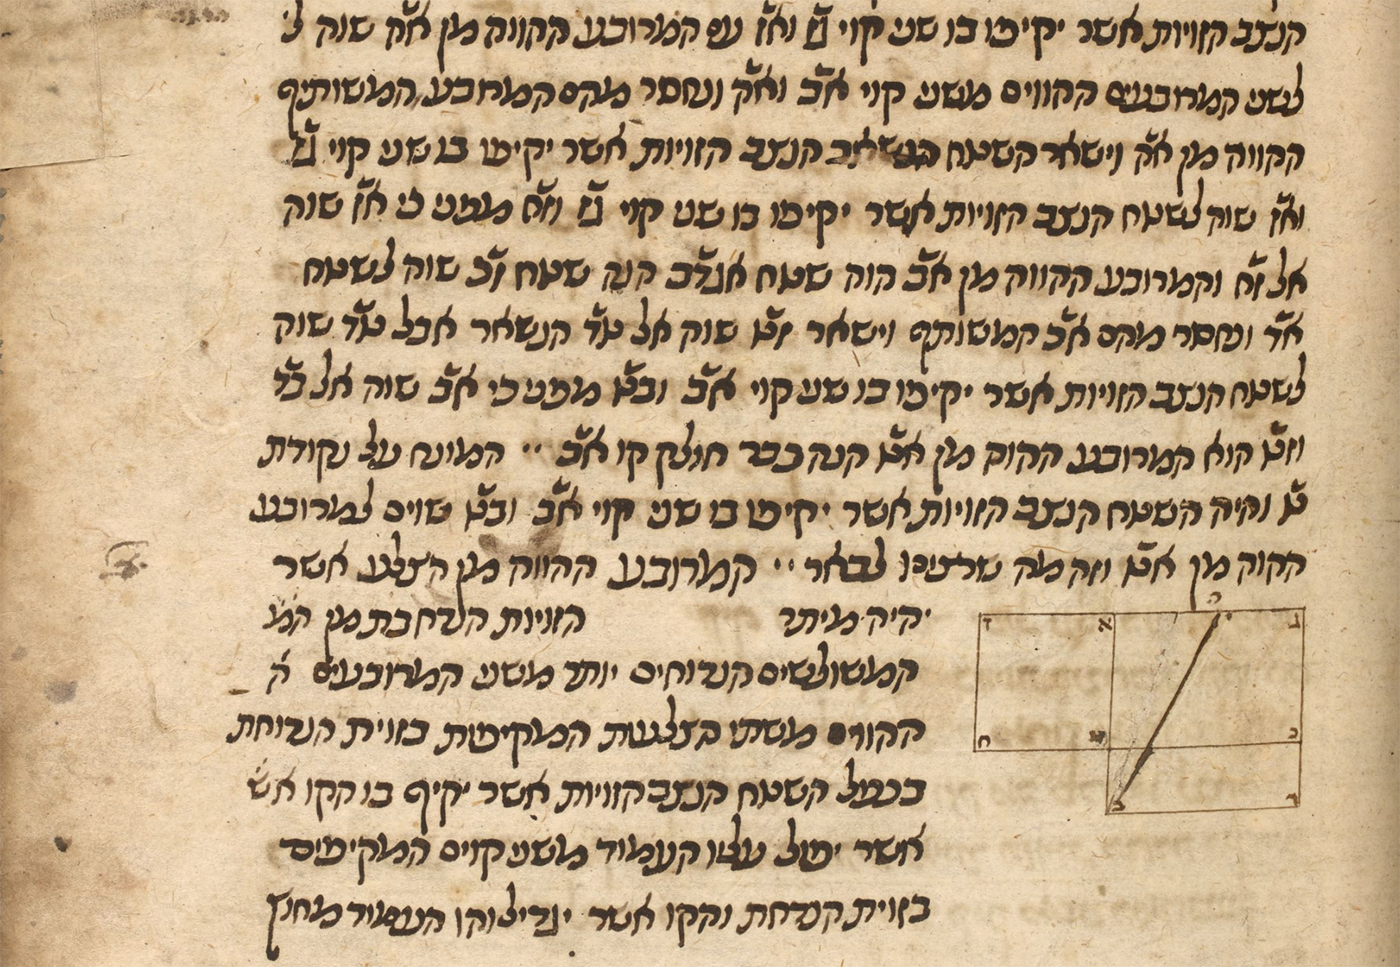 הנצב הזויות אשר יקיפו בו שני קוי גז ואז עם המרובע ההווה מן אה שוה ל
לשני המרובעים ההווים משני קוי אב ואה ונחסר מהם המרובע המשותף
ההווה מן אה וישאר השטח הנצב הזויות אשר יקיפו בו שני קוי גז
ואז שוה לשטח הנצב הזויות אשר יקיפו בו שני קוי גז וזח מפני כי אז שוה
אל זח והמרובע ההווה מן אב הוה שטח אד הנה שטח זכ שוה לשטח
אד ונחסר מהם אכ המשותף וישאר זט שוה אל טד הנשאר אבל טד שוה
לשטח הנצב הזויות אשר יקיפו בו שני קוי אב ובט מפני כי אב שוה אל בד
וזט הוא המרובע ההוה מן אט הנה כבר חולק קו אב המונח על נקודת
ט והיה השטח הנצב הזויות אשר יקיפו בו שני קוי אב ובט שוים למרובע
ההוה מן אט וזה מה שרצינו לבאר המרובע ההווה מן הצלע אשר
יהיה מיתר הזויות הנרחבת מן המ
המשולשים הנרוחים יותר משני המרובעים ה
ההווים משתי הצלעות המקיפות בזוית הנרוחת
בכפל השטח הנצב הזויות אשר יקיף בו הקו אש
אשר יפול עליו העמוד משני קוים המקיפים
בזוית הנרחת והקו אשר יגדילוהו העמוד מחוץ
ה
ד א ג
ח ט כ
ב ר